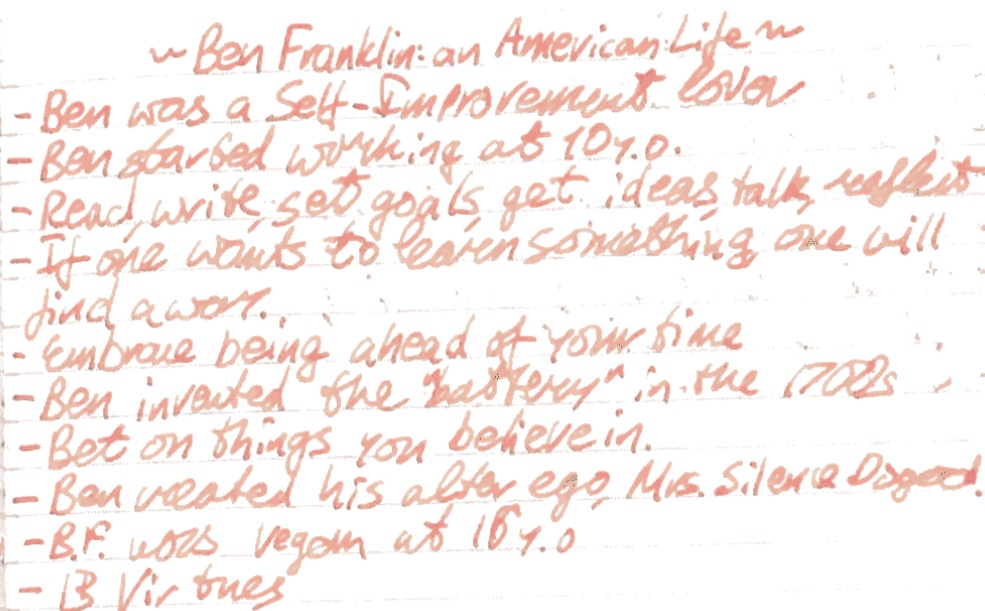 ~ Ben Franklin: an American Life ~
- Ben was a Self-Improvement lover
- Ben started working at 10 y.o.
- Read, write, set goals, get ideas, talk, reflect
- If one wants to learen something, one will
find a way.
- Embrace being ahead of your time
- Ben invented the "battery" in the 1700s
- Bet on things you believe in.
- Ben created his alter ego, Mrs. Silence Dogood.
- B.F. was vegan at 16 y.o
- 13 Virtues